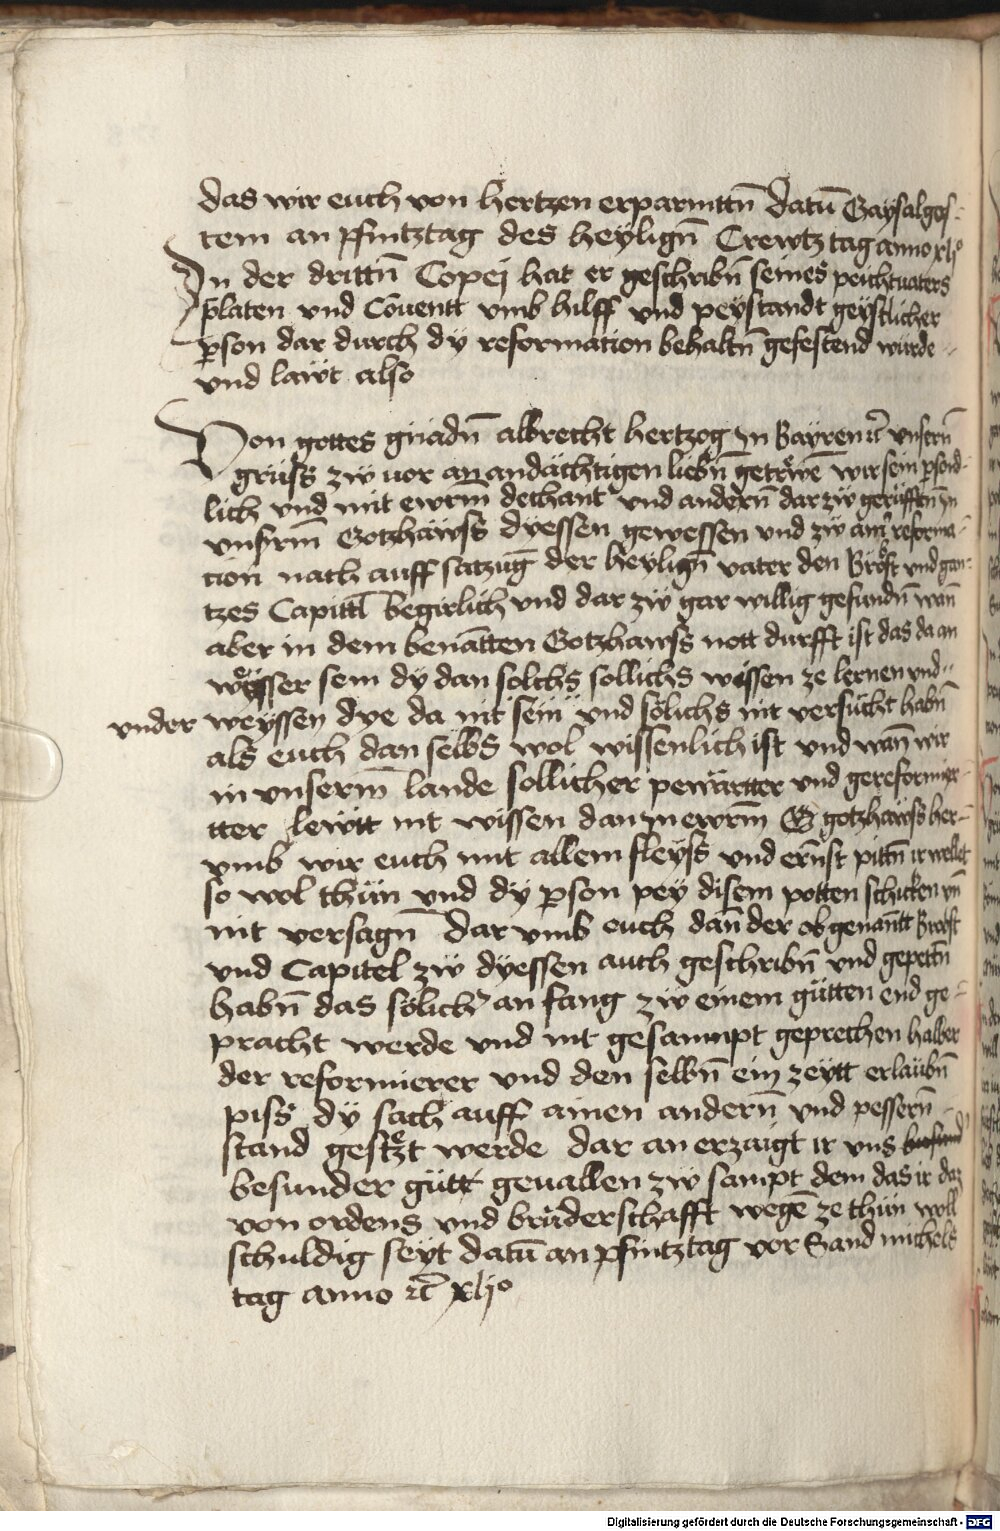 das wir euch von hertzen erparmttn̄ datū Gaysalgos-
tem an pfintztag des heylign̄ Crewtz tag anno xljº
In der drittn̄ Copej hat er geschribn̄ seines peichtuaters
p̄laten vnd Cōuentt vmb hilff vnd peystandt geystlicher
p̄son dar durch dÿ reformation behaltn̄ gefestend wurde
vnd lawt also
Von gottes gnadn̄ albrecht hertzog jn Bayren ꝛc̄ vnsern̄
grüss zw uor an andächtigen liebn̄ getrẅē wir sein p̄sond-
lich vnd mit ewrm dechant vnd andern̄ dar zw gerüfften jn
vnsrm̄ Gotzhawss dyessen gewessen vnd zw ainr̄ reforma-
tion nach auff satzūg der heylign̄ vater den Brobst vnd gan-
tzes Capittl̄ begirlich vnd dar zw gar willig gefundn̄ wan̄
aber in dem benātten Gotzhawss nott durfft ist das da an
weysser sem dÿ dan solchs sollichs wissen ze lernen vnd
vnder weyssen dye da nit sein vnd sölichs nit versücht habn̄
als euch dan selbs wol wissenlich ist vnd wan̄ wir
in vnserm̄ lande sollicher pewärtter vnd gereformier-
tter lewtt nit wissen dan jn ewrm̄ G gotzhawss her-
vmb wir euch mit allem fleyss vnd ernst pittn̄ ir wellet
so wol thün vnd dÿ p̄son pey disem potten schicken vn̄
nit versagn̄ dar vmb euch dan̄ der obgenan̄tt Brobst
vnd Capitel zw dyessen auch geschribn̄ vnd gepettn̄
habn̄ das sölichr̄ an fang zw einem gütten end ge-
pracht werde vnd nit gesaumpt geprechen halber
der reformierer vnd den selbn̄ ein zeytt erlaubn̄
piss dÿ sach auff ainen andern̄ vnd pessern̄
stand gesetzt werde dar an erzaigt ir vns
besunder gütt geuallen zw sampt dem das ir daz
von ordens vnd brüderschafft wegē ze thün woll
schuldig seyt datū an pfintztag vor Sand michels
tag anno ꝛc̄ xljº
Digitalisierung gefördert durch die Deutsche Forschungsgemeinschaft - DFG